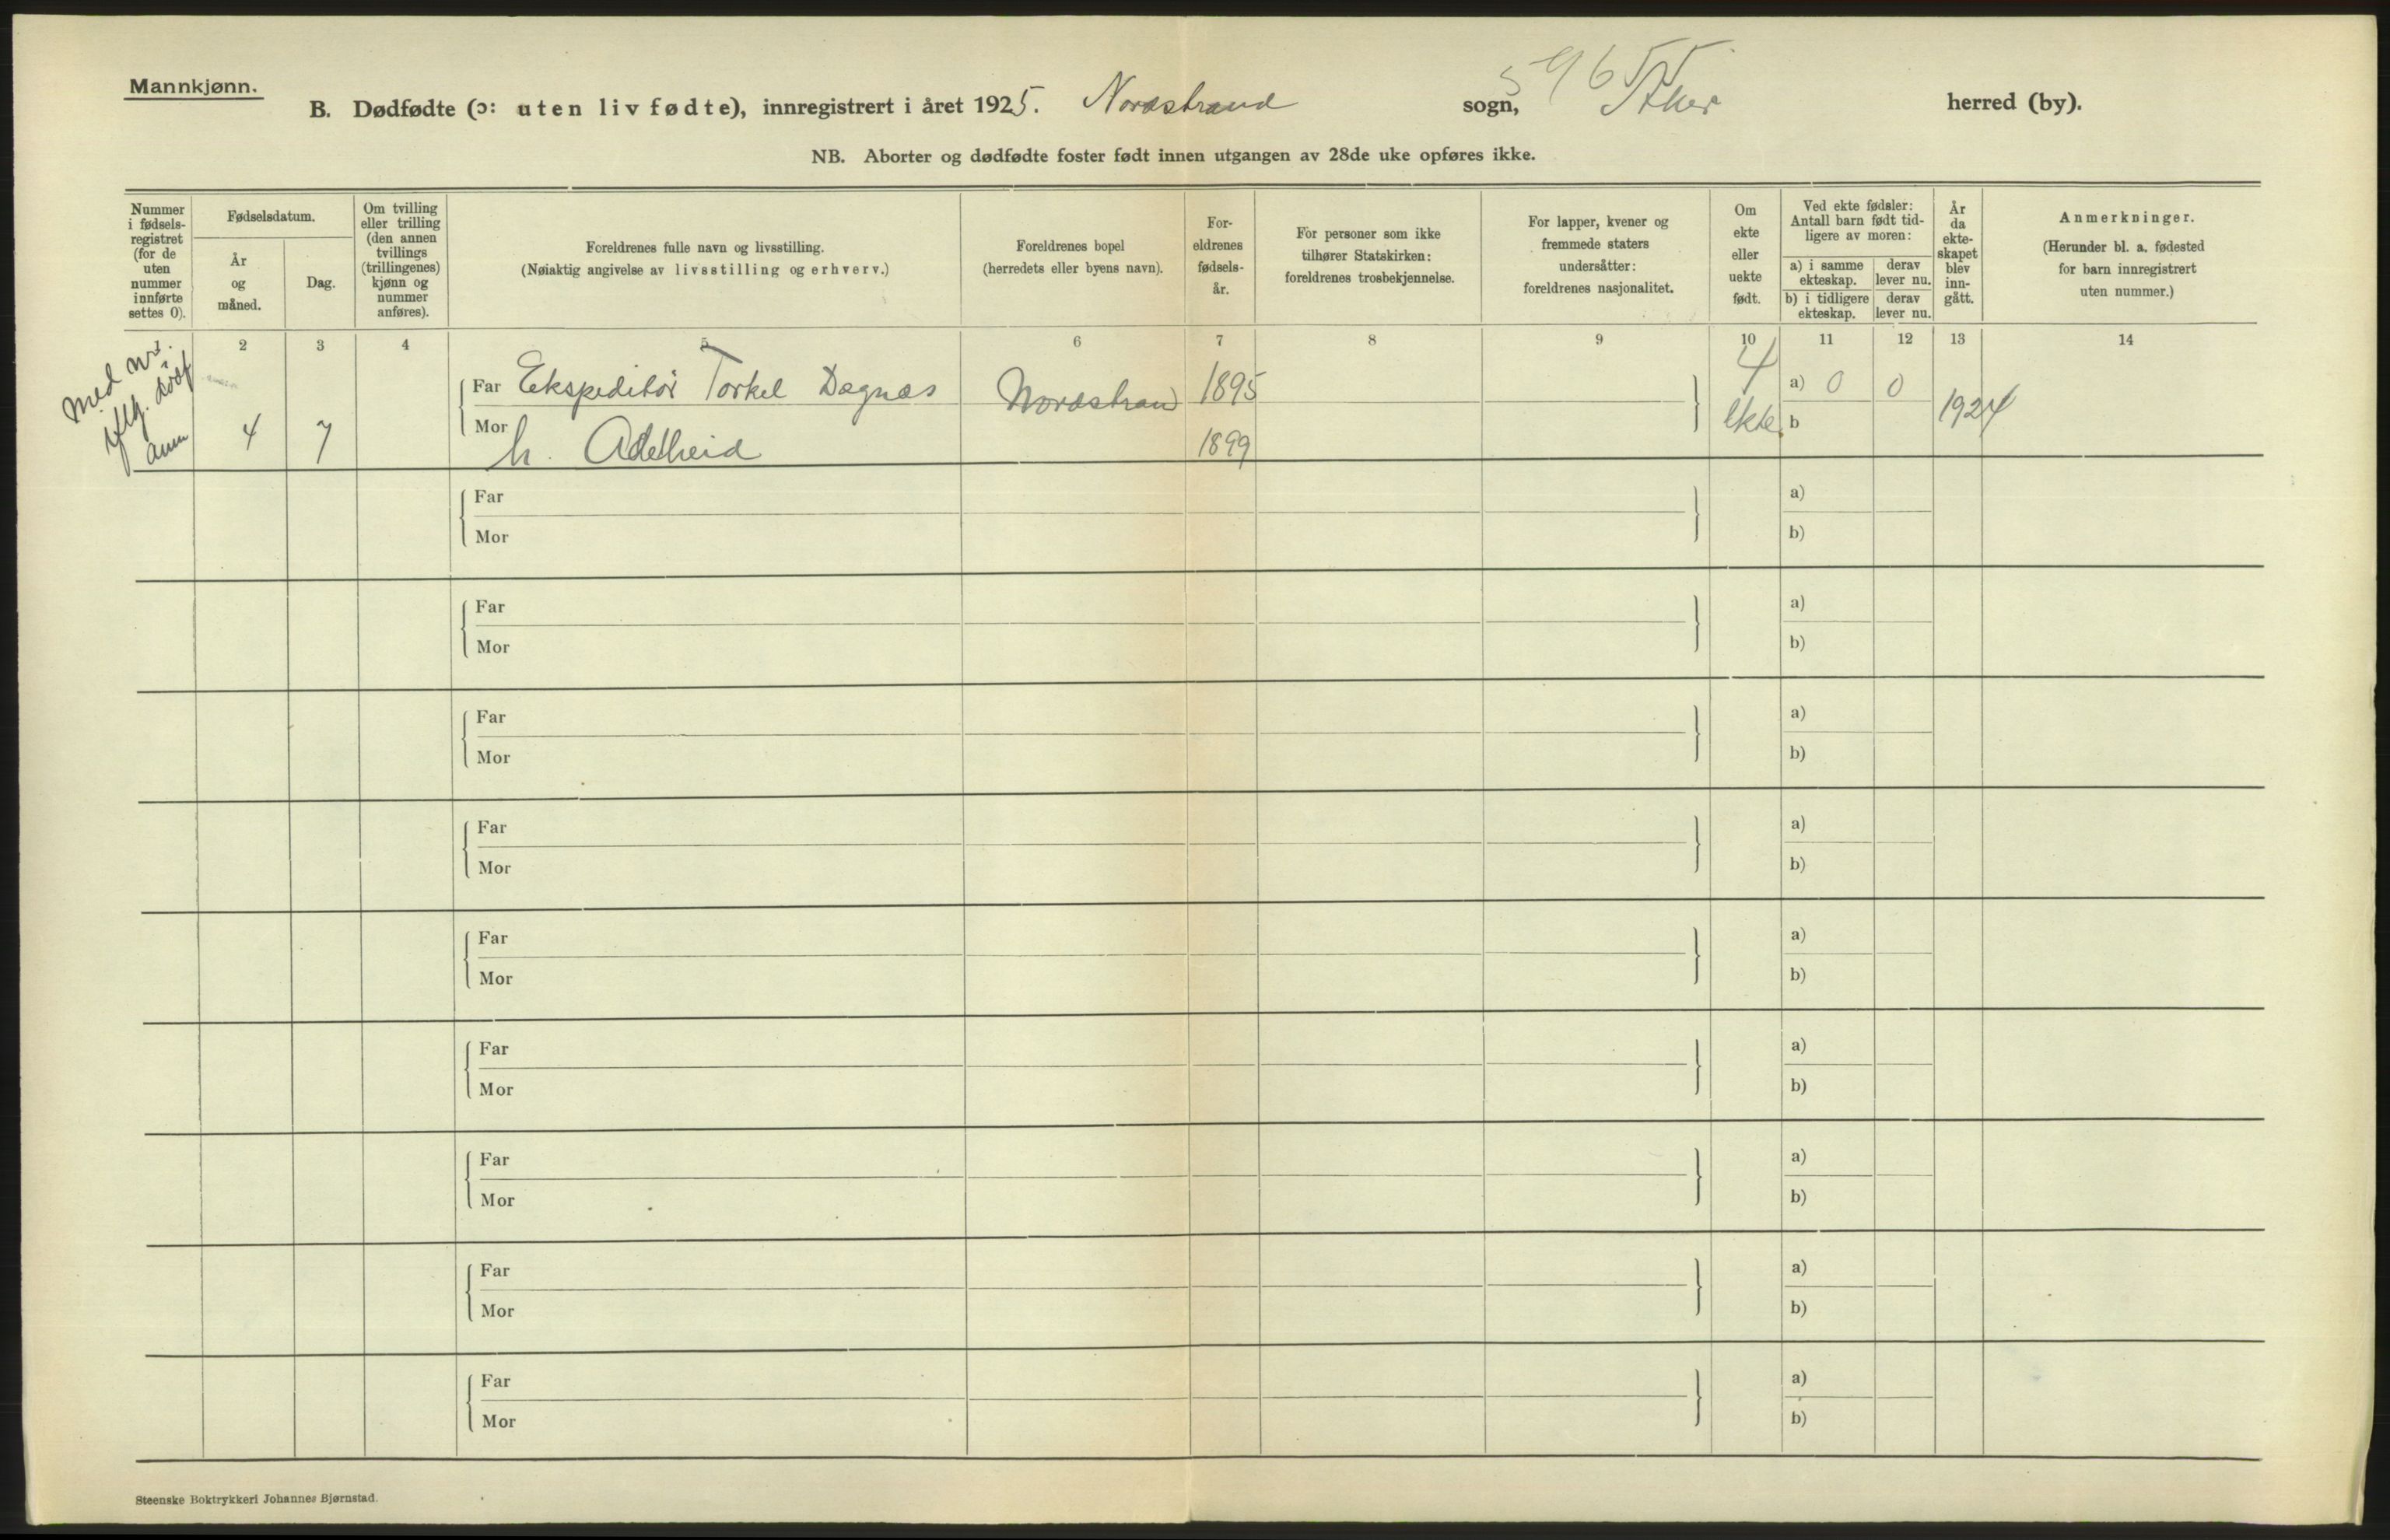 Mannkjønn.
5965
B. Dødfødte (ɔ: uten liv fødte), innregistrert i året 1925. Nordstrand sogn, Aker herred (by).
NB. Aborter og dødfødte foster født innen utgangen av 28de uke opføres ikke.
Nummer i fødsels- registret (for de uten nummer innførte settes 0).
Fødselsdatum.
År og måned.
Dag.
Om tvilling eller trilling (den annen tvillings (trillingenes) kjønn og nummer anføres).
Foreldrenes fulle navn og livsstilling.
(Nøiaktig angivelse av livsstilling og erhverv.)
Foreldrenes bopel
(herredets eller byens navn).
For- eldrenes fødsels- år.
For personer som ikke tilhører Statskirken: foreldrenes trosbekjennelse.
For lapper, kvener og fremmede staters undersåtter: foreldrenes nasjonalitet.
Om ekte eller uekte født.
Ved ekte fødsler: Antall barn født tid- ligere av moren:
a) i samme ekteskap.
derav lever nu.
b) i tidligere ekteskap.
derav lever nu.
År da ekte- skapet blev inn- gått.
Anmerkninger.
(Herunder bl. a. fødested for barn innregistrert uten nummer.)
2 3 4 5 6 7 8 9 10 11 12 13 14
Med nr.
iflg.
4 7
Far Ekspeditør Torkel Dagnæs Nordstrand 1895 4 a) 0 0
Mor h. Adelheid 1899 ekte b 1924
Far a)
Mor b)
Far a)
Mor b)
Far a)
Mor b)
Far a)
Mor b)
Far a)
Mor b)
Far a)
Mor b)
Far a)
Mor b)
Far a)
Mor b)
Far a)
Mor b)
Steenske Boktrykkeri Johannes Bjørnstad.